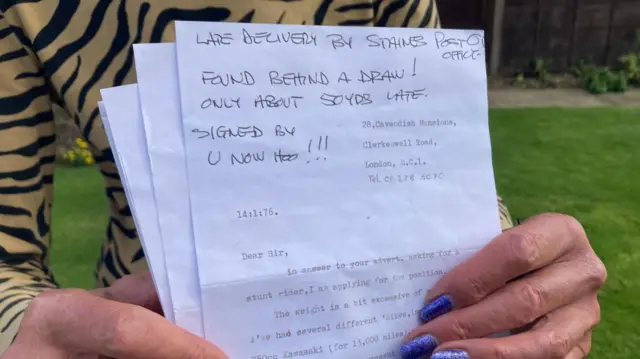 LATE DELIVERY BY STAINES POST OFFICE.
FOUND BEHIND A DRAW!
ONLY ABOUT 50YDS LATE.
SIGNED BY
U NOW HOO !!!
28,Cavendish Mansions,
Clerkenwell Road,
London, E.C.1.
Tel.
14:1:76.
Dear Sir,
in answer to your advert. asking for a
stunt rider,I am applying for the position.
The weight is a bit excessive of
I've had several different 'bikes,
250cc Kawasaki (for 13,000 miles)